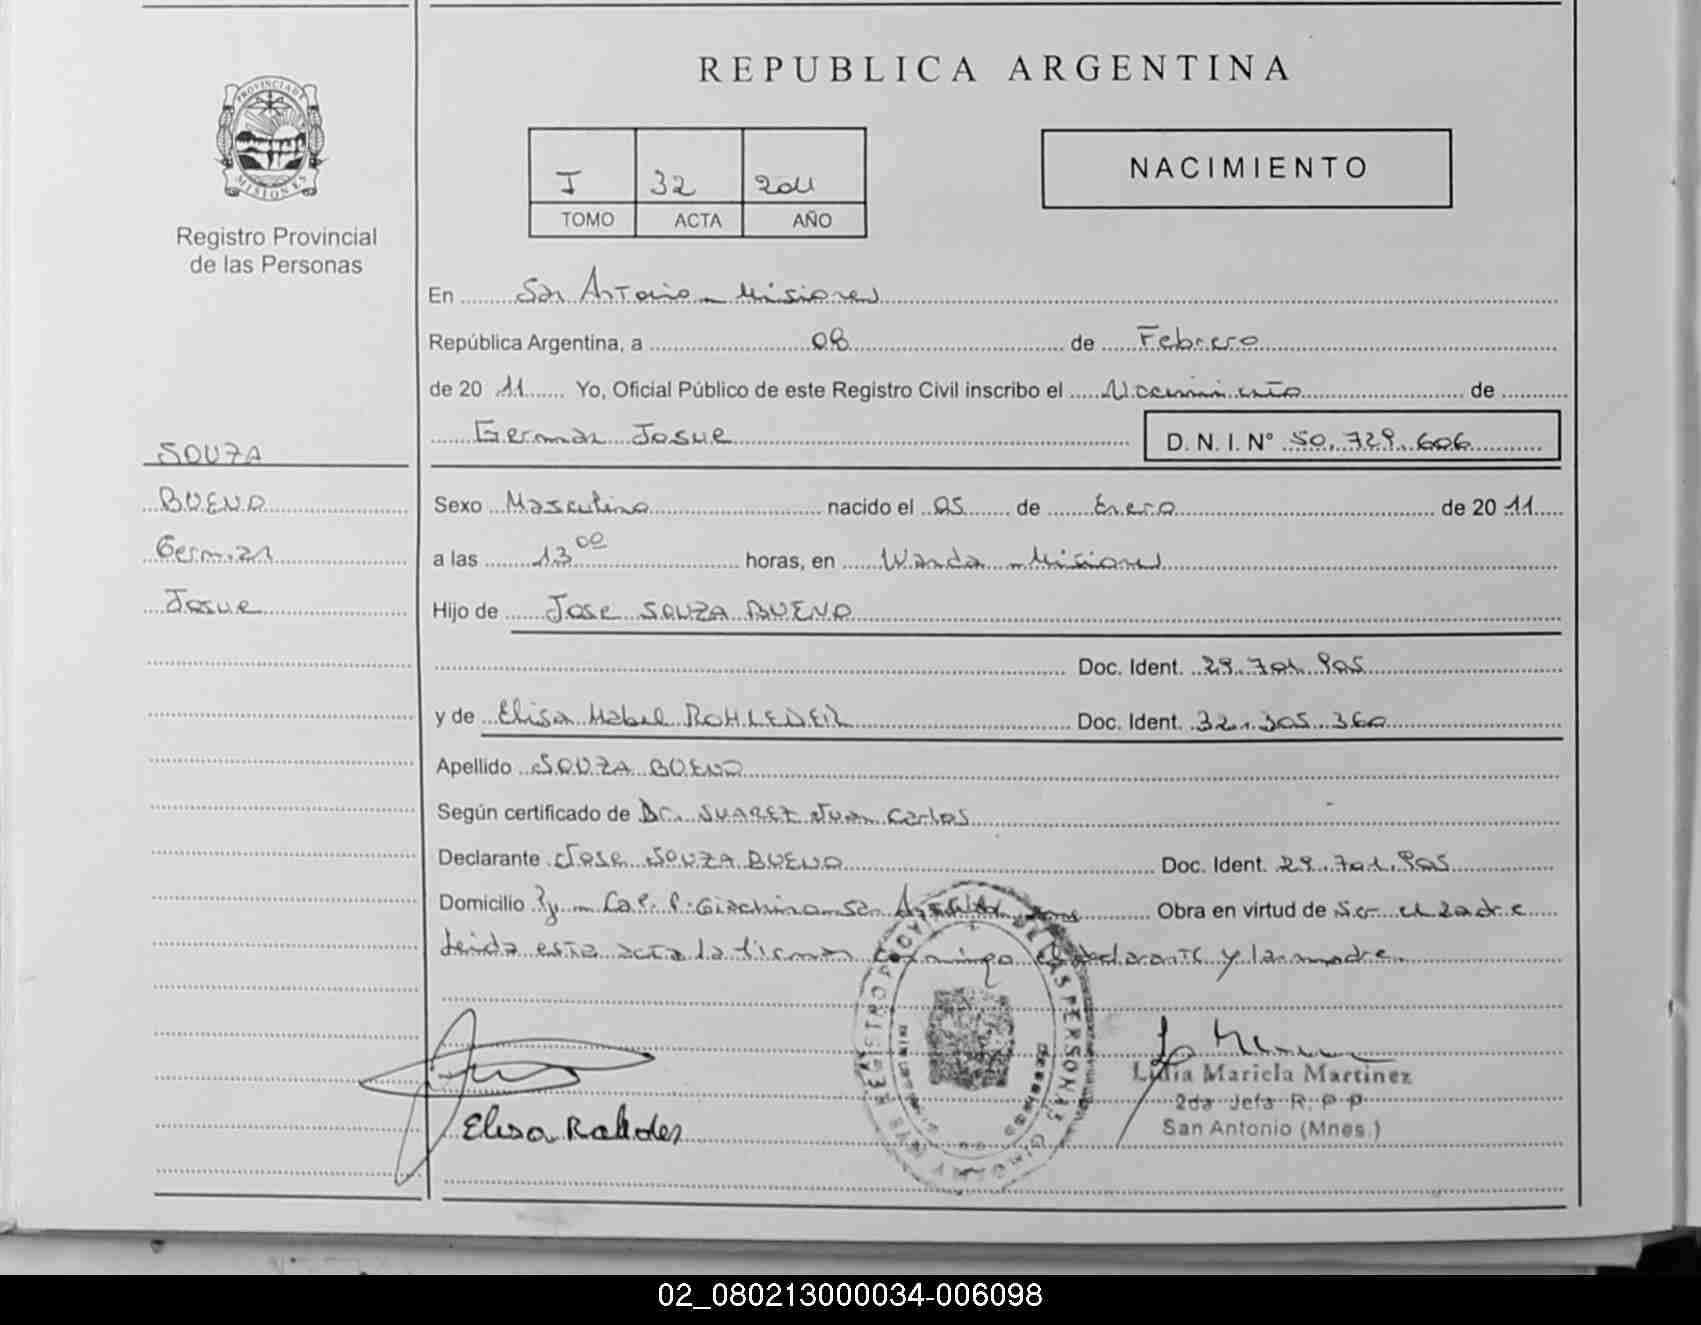 REPUBLICA ARGENTINA
PROVINCIA DE MISIONES
Registro Provincial
de las Personas
I 32 2011
TOMO ACTA AÑO
NACIMIENTO
En San Antonio - Misiones
República Argentina, a 08 de Febrero
de 20 11 Yo, Oficial Público de este Registro Civil inscribo el Nacimiento de
German Josue D. N. I. N° 50.729.606
SOUZA
BUENO
German
Josue
Sexo Masculino nacido el 05 de Enero de 20 11
a las 13 00 horas, en Wanda - Misiones
Hijo de Jose SOUZA BUENO
Doc. Ident. 29.701.905
y de Elisa Mabel ROHLEDER Doc. Ident. 32.305.360
Apellido SOUZA BUENO
Según certificado de Dr. SUAREZ Juan Carlos
Declarante Jose SOUZA BUENO Doc. Ident. 29.701.905
Domicilio San Obra en virtud de ser el padre
leida esta acta la firman conmigo el declarante y la madre
Elisa
Lidia Mariela Martinez
2da Jefa R. P. P
San Antonio (Mnes.)
02_080213000034-006098